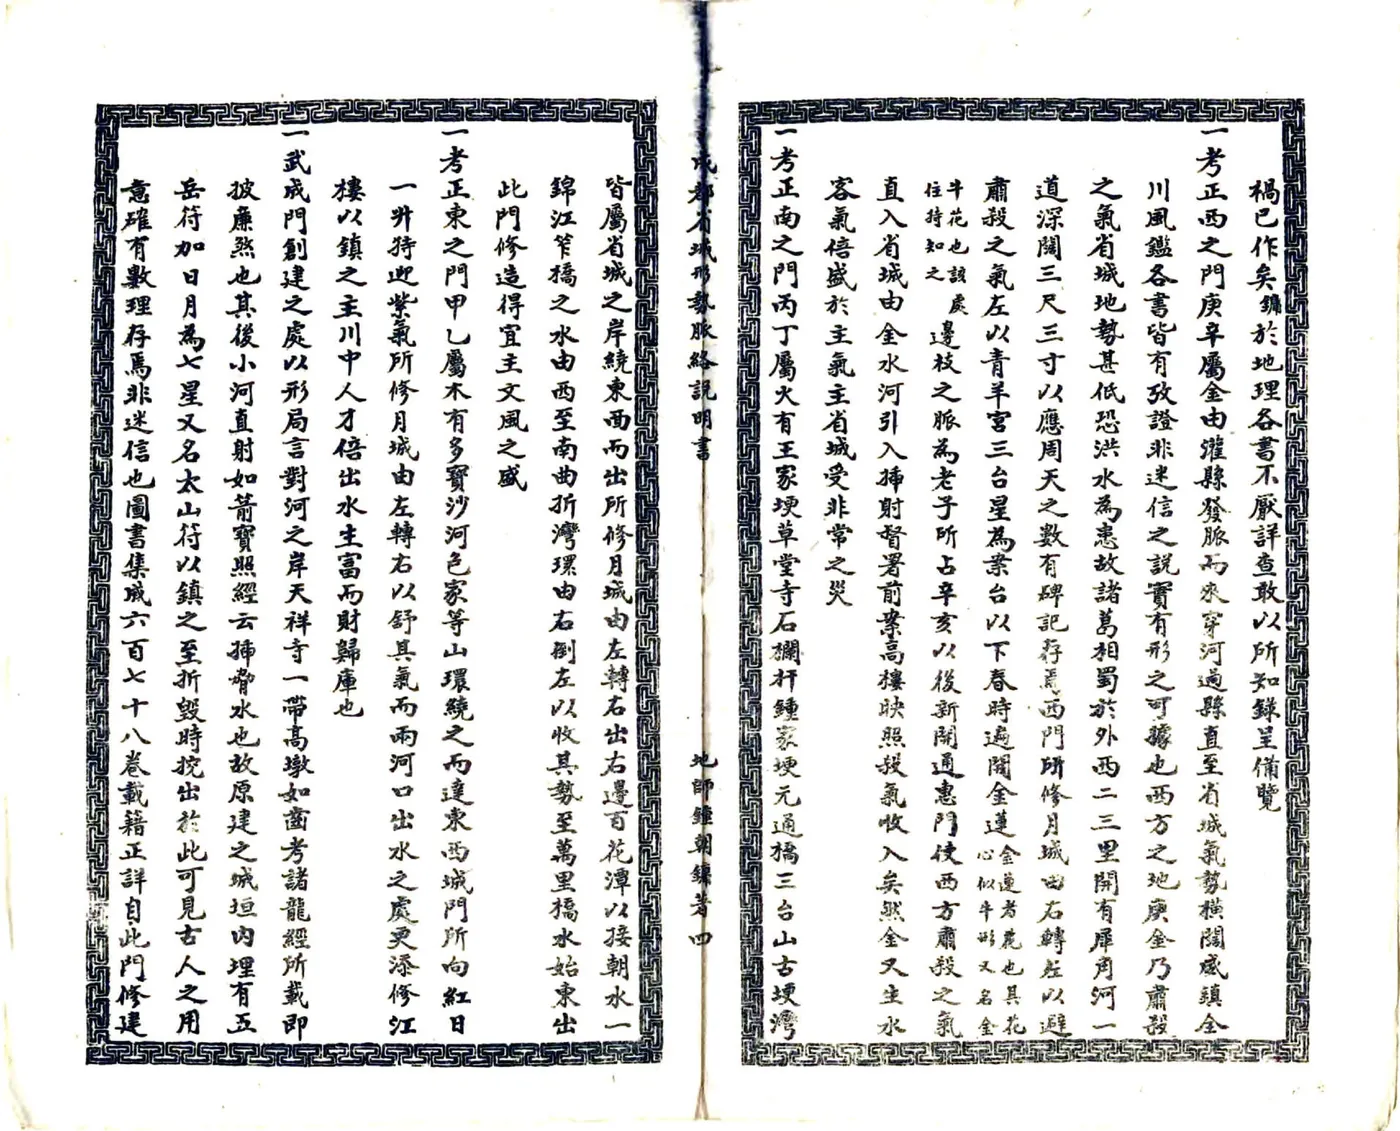 禍已作矣鏞於地理各書不厭詳查敢以所知錄呈備覽
一考正西之門庚辛屬金由灌縣發脈而來穿河過縣直至省城氣勢橫闊威鎮全
川風鑑各書皆有攷證非迷信之説實有形之可據也西方之地庚金乃肅殺
之氣省城地勢甚低恐洪水為患故諸葛相蜀於外西二三里開有犀角河一
道深闊三尺三寸以應周天之數有碑記存焉西門所修月城由右轉左以避
肅殺之氣左以青羊宮三台星為案台以下春時遍闊金蓮金蓮者花也其花
心似牛形又名金
牛花也該處
住持知之邊枝之脈為老子所占辛亥以後新開通惠門使西方肅殺之氣
直入省城由金水河引入揷射督署前案高樓映照殺氣收入矣然金又生水
客氣倍盛於主氣主省城受非常之災
一考正南之門丙丁屬火有王家埂草堂寺石欄杆鍾家埂元通橋三台山古埂灣
成都省城形勢脈絡説明書
地師鍾朝鏞著 四
皆屬省城之岸繞東西而出所修月城由左轉右出右邊百花潭以接朝水一
錦江笮橋之水由西至南曲折灣環由右倒左以收其勢至萬里橋水始東出
此門修造得宜主文風之盛
一考正東之門甲乙屬木有多寳沙河包家等山環繞之而達東西城門所向紅日
一升特迎紫氣所修月城由左轉右以舒其氣而兩河口出水之處更添修江
樓以鎮之主川中人才倍出水主富而財歸庫也
一武成門創建之處以形局言對河之岸天祥寺一帶高墩如齒考諸龍經所載即
披廉煞也其後小河直射如箭寳照經云揷脅水也故原建之城垣内埋有五
岳符加日月為七星又名太山符以鎮之至折毀時挖出於此可見古人之用
意確有數理存焉非迷信也圖書集成六百七十八卷載籍正詳自此門修建